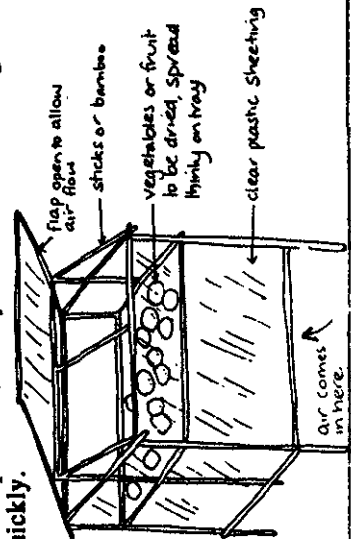 uickly.
flap open to allow
air flow
sticks or bamboo
vegetables or fruit
to be dried, spread
thinly on tray
clear plastic sheeting
air comes
in here.